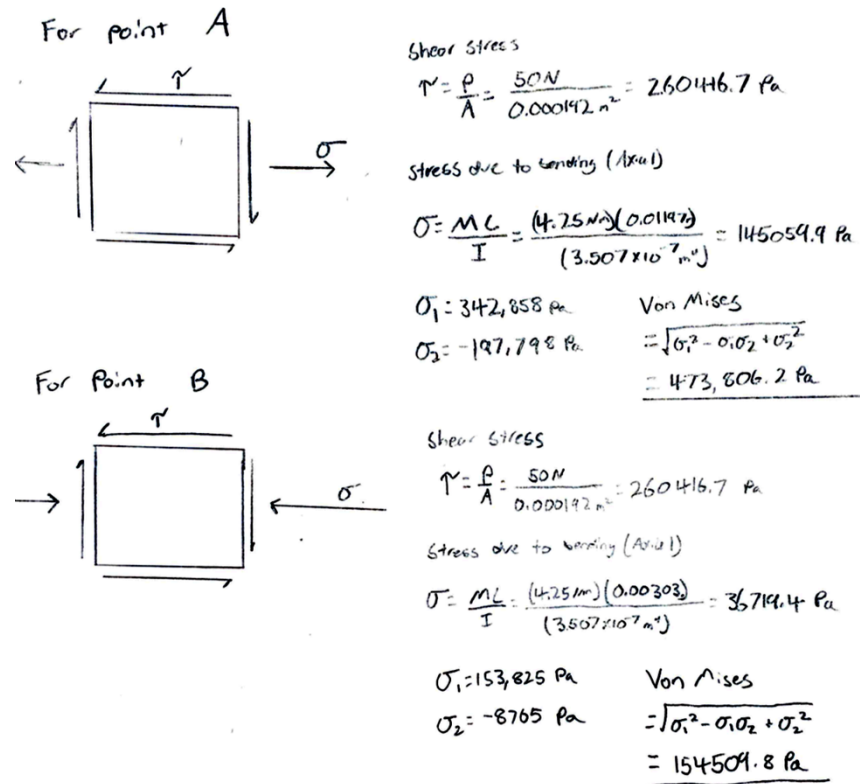 For point A
τ
σ
Shear Stress
τ = P/A = 50N / 0.000192 m² = 260416.7 Pa
Stress due to bending (Axial)
σ = MC/I = (4.25 Nm)(0.01197) / (3.507×10⁻⁷ m⁴) = 145059.9 Pa
σ₁ = 342,858 Pa
σ₂ = -197,798 Pa
Von Mises
= √(σ₁² - σ₁σ₂ + σ₂²)
= 473,806.2 Pa
For Point B
τ
σ
Shear Stress
τ = P/A = 50N / 0.000192 m² = 260416.7 Pa
Stress due to bending (Axial)
σ = MC/I = (4.25 Nm)(0.00303) / (3.507×10⁻⁷ m⁴) = 36719.4 Pa
σ₁ = 153,825 Pa
σ₂ = -8765 Pa
Von Mises
= √(σ₁² - σ₁σ₂ + σ₂²)
= 154509.8 Pa